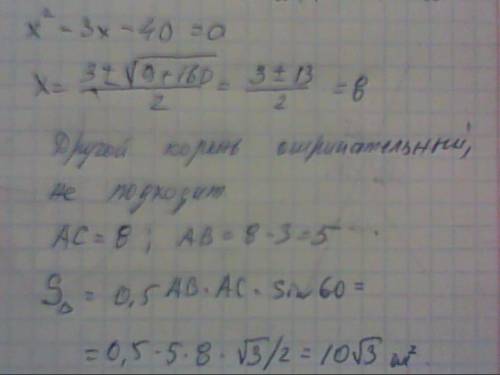 x² - 3x - 40 = 0
x = (3 ± √(9 + 160)) / 2 = (3 ± 13) / 2 = 8
Другой корень отрицательный,
не подходит
AC = 8 ; AB = 8 - 3 = 5
S△ = 0,5 AB · AC · Sin 60 =
= 0,5 · 5 · 8 · √3/2 = 10√3 м².